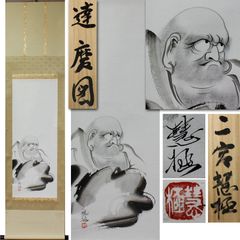 達磨図
慧極
二宮慧極
慧極